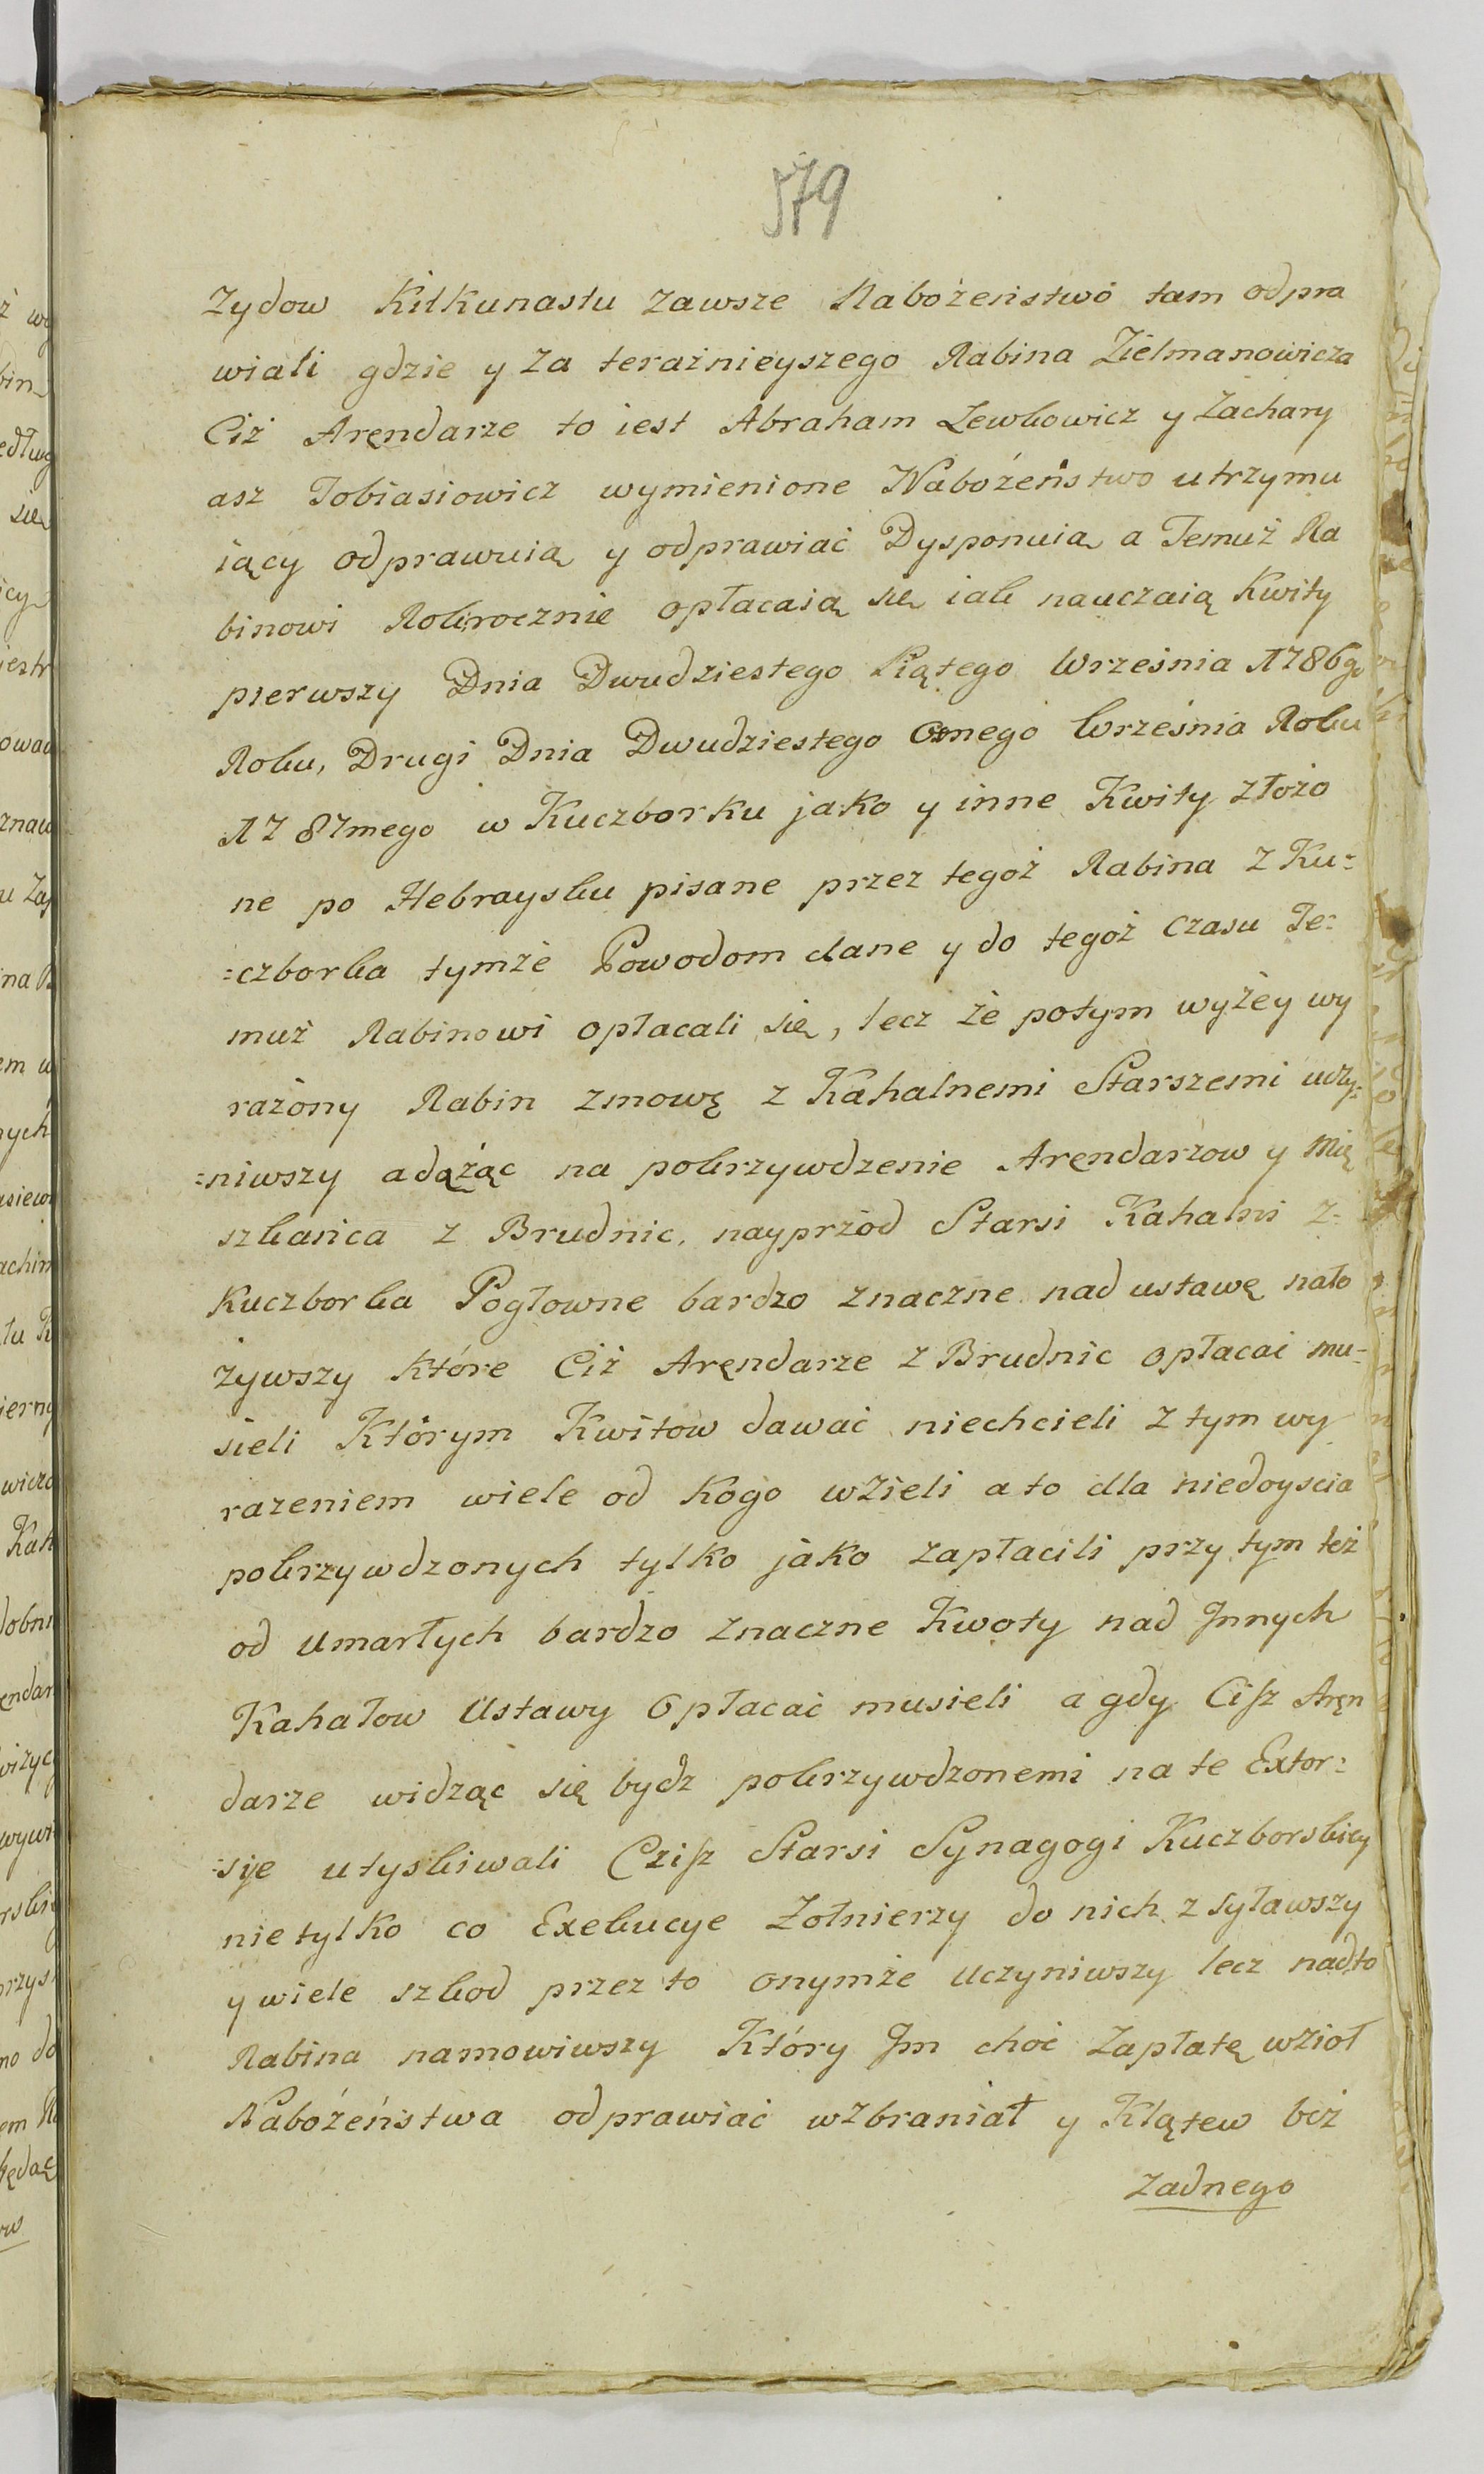 579
Zydow Kilkunastu zawsze Nabożeństwo tam odpra
wiali gdzie y za teraźnieyszego Rabina Zielmanowicza
Ciż Aręndarze to iest Abraham Lewkowicz y Zachary
asz Tobiasiowicz wymienione Nabożeństwo utrzymu
iący odprawuią y odprawiać Dysponuią a Temuż Ra
binowi Rokrocznie opłacaią się iak nauczaią Kwity
pierwszy Dnia Dwudziestego Piątego Września 1786go
Roku, Drugi Dnia Dwudziestego Osmego Września Roku
1787mego w Kuczborku jako y inne Kwity złożo
ne po Hebraysku pisane przez tegoż Rabina z Ku=
=czborka tymże Powodom dane y do tegoż czasu Te=
muż Rabinowi opłacali się, lecz że potym wyżey wy
rażony Rabin zmowę z Kahalnemi Starszemi uczy=
=niwszy a dążąc na pokrzywdzenie Aręndarzow y Mię
szkańca z Brudnic, nayprzod Starsi Kahalni z=
Kuczborka Pogłowne bardzo znaczne nad ustawę nało
żywszy które Ciż Aręndarze z Brudnic opłacać mu=
sieli Którym Kwitow dawać niechcieli z tym wy
rażeniem wiele od Kogo wzieli a to dla niedoyscia
pokrzywdzonych tylko jako zapłacili przy tym też
od umarłych bardzo znaczne Kwoty nad Innych
Kahałow Ustawy Opłacać musieli a gdy Ciſz Aręn
darze widząc się bydź pokrzywdzonemi na te Extor=
=sye utyskiwali Cziſz Starsi Synagogi Kuczborskiey
nie tylko co Exekucye Żołnierzy do nich zsyławszy
y wiele szkod przez to onymże uczyniwszy lecz nadto
Rabina namowiwszy Który Im choć Zapłatę wzioł
Nabożeństwa odprawiać wzbraniał y Klątew beż
żadnego